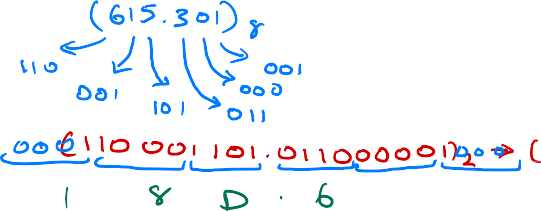 (615.301)8
110 001 101 011 000 001
000(110001101.011000001)2000 → (
1 8 D . 6